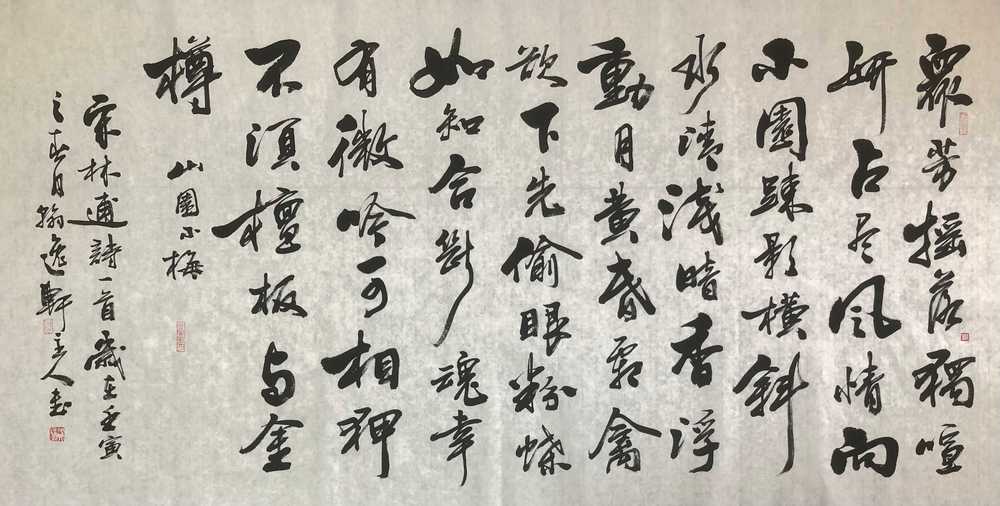 衆芳摇落獨喧
妍占尽風情向
小園踈影横斜
水清淺暗香浮
動月黄昏霜禽
欲下先偷眼粉蝶
如知合斷魂幸
有微吟可相狎
不須檀板与金
樽
山園小梅
宋林逋詩一首歲在壬寅
之春月翰逸軒主人書